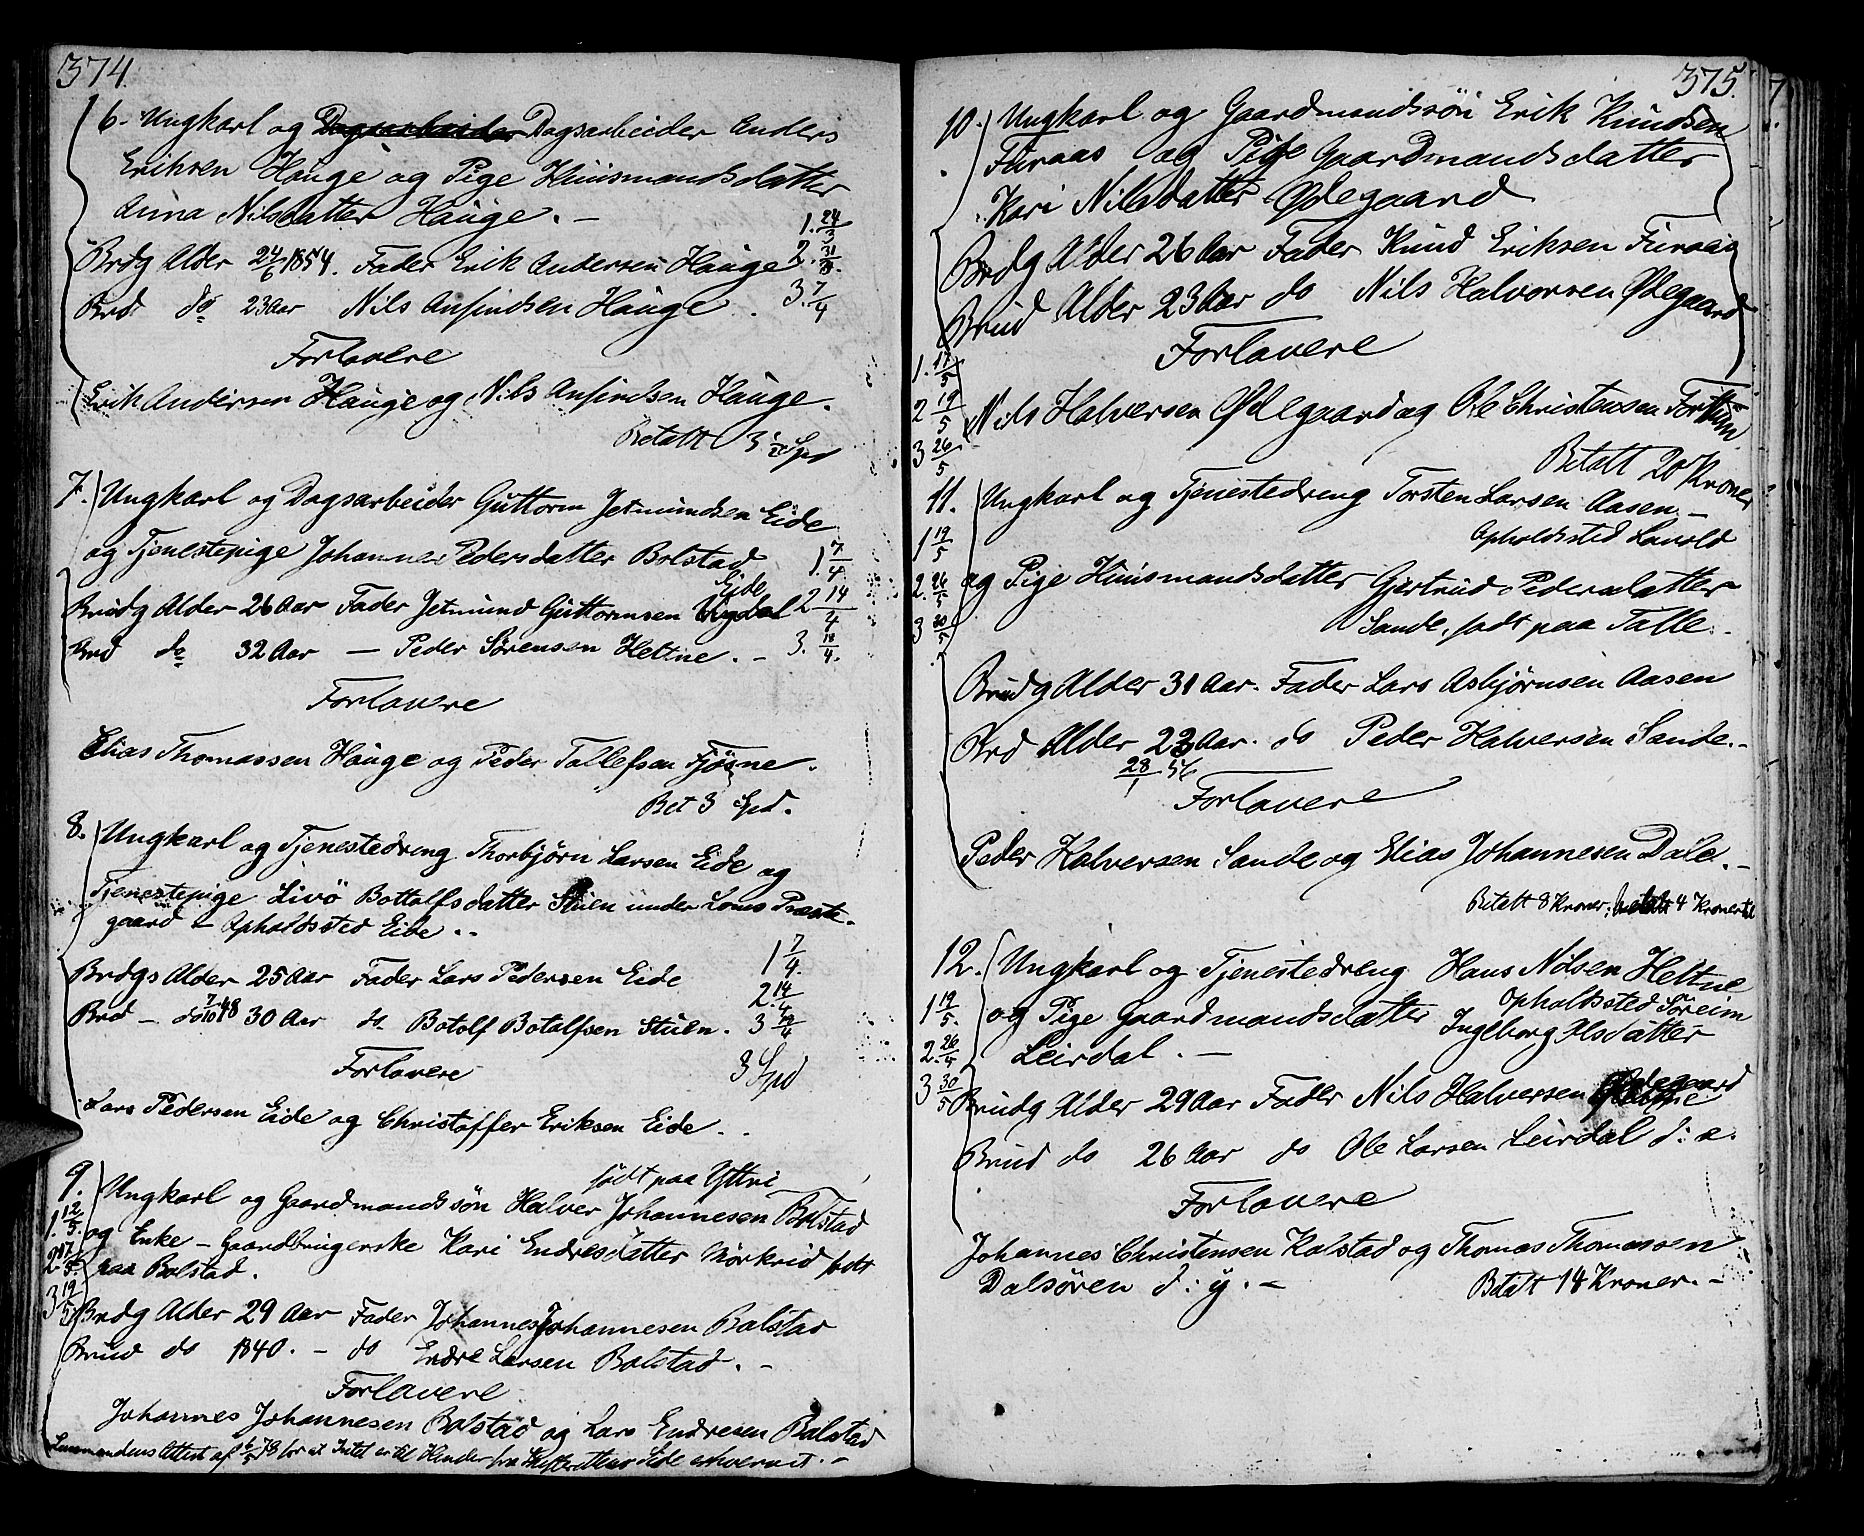 374
6. Ungkarl og Dagsarbeider Dagsarbeider Enders
Eriksen Hauge og Pige Huusmandsdatter
Anna Nilsdatter Hauge. —
1. 24/3
Brdg Alder 24/6 1854. Fader Erik Andersen Hauge
2. 31/3.
Brd do 23 Aar Nils Ansindsen Hauge.
3. 7/4
Forlovere
Erik Andersen Hauge og Nils Ansindsen Hauge.
Betalt 3 Spd
7. Ungkarl og Dagsarbeider Guttorm Jetmundsen Eide
og Tjenestepige Johanne Pedersdatter Bolstad
1. 7/4
Eide
Brudg Alder 26 Aar Fader Jetmund Guttormsen
2 14/4
Brd do 32 Aar — Peder Sørensen Heltne. —
3. 18/4.
Forlovere
Elias Thomassen Hauge og Peder Tollefsen Fjøsne.
Bet 3 Spd.
8. Ungkarl og Tjenestedreng Thorbjørn Larsen Eide og
Tjenestepige Livö Bottolfsdatter Stuen under Loms Præste-
gaard — Opholdssted Eide..
Brdgs Alder 25 Aar Fader Lars Pedersen Eide
1 7/4.
2. 14/4
Brd — do 7/10 48 30 Aar do Botolf Botolfsen Stuen.
3 /4
Forlovere
3 Spd
Lars Pedersen Eide og Christoffer Eriksen Eide..
født paa Yttri
9. Ungkarl og Gaardmandssön Halver Johannesen Bolstad
1. 12/5. og Enke — Gaardbrugerske Kari Endresdatter Mörkrid født
2 17/5. paa Bolstad.
3 19/5 Brdg Alder 29 Aar Fader Johannes Johannesen Bolstad
Brud do 1840. — do Endre Larsen Bolstad. —
Forlovere
Johannes Johannesen Bolstad og Lars Endresen Bolstad
Lensmandens Attest af 6/5 78 for at Intet er til Hinder fra Skifterettens Side erhvervet. —
375.
10. Ungkarl og Gaardmandssön Erik Knudsen
Furaas og Pige Gaardmandsdatter
Kari Nilsdatter Ødegaard
Brdg Alder 26 Aar Fader Knud Eriksen Furaas
Brud Alder 23 Aar do Nils Halvorsen Ødegaard
Forlovere
1. 17/5
2 19/5 Nils Halversen Ødegaard og Ole Christensen Forthun
3 26/5
Betalt 20 Kroner
11. Ungkarl og Tjenestedreng Torsten Larsen Aasen —
1 19/5
Opholdssted Lavold
2. 26/5 og Pige Huusmandsdatter Gjertrud Pedersdatter
3 30/5
Sande, født paa Talle.
Brudg Alder 31 Aar. Fader Lars Asbjørnsen Aasen
Brd Alder 22 Aar. do Peder Halversen Sande. —
28/1 56
Forlovere
Peder Halversen Sande og Elias Johannesen Dale. —
Betalt 8 Kroner; betalt 4 Kroner til
12. Ungkarl og Tjenestedreng Hans Nilsen Heltne
Opholdssted Söreim
1 19/5. og Pige Gaardmandsdatter Ingeborg Olsdatter
2. 26/5 Leirdal. —
3 30/5 Brudg Alder 29 Aar Fader Nils Halversen Ødegaard
Brud do 26 Aar do Ole Larsen Leirdal d: æ.
Forlovere
Johannes Christensen Kalstad og Thomas Thomassen
Dalsören d: y. —
Betalt 14 Kroner. —